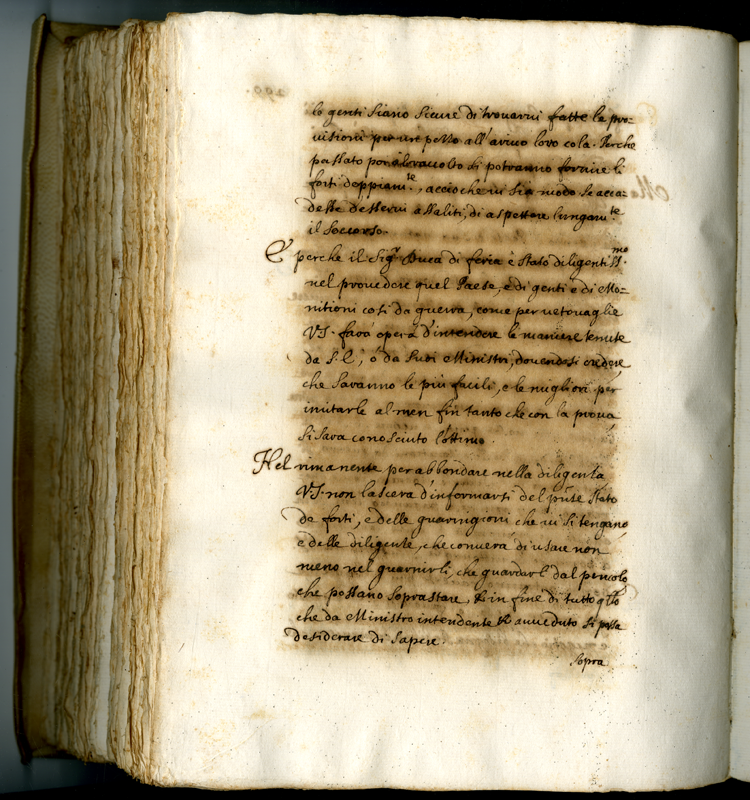 lo genti siano sicure di trouarui fatte le pro=
uisioni per un pezzo all'arriuo loro cola. Perche
passato poi il raccolto si potranno fornire li
forti doppiam.te, accioche in sia modo se acca=
desse d'esserui assaliti, di aspettare lungam.te
il soccorso.
E perche il Sig.r Duca di feria è stato diligentiss.mo
nel prouedere quel Paese, e di genti e di Mo=
nitioni cosi da guerra, come per uetouaglie
V.S. fara opera d'intendere le maniere tenute
da S.E., ó da suoi Ministri, douendosi credere,
che saranno le più facili, e le migliori per
imitarle al men fin tanto che con la proua
si sara conosciuto l'ottimo.
Nel rimanente per abbondare nella diligenza
V.S. non lascera d'informarsi del pnte stato
de forti, e delle guarnigioni che ui si tengano,
e delle diligenze, che conuerà di usare non
meno nel guarnirli, che guardarli dal pericolo
che possano soprastare, & in fine di tutto qllo
che da Ministro intendente & auueduto si possa
desiderare di sapere.
Sopra